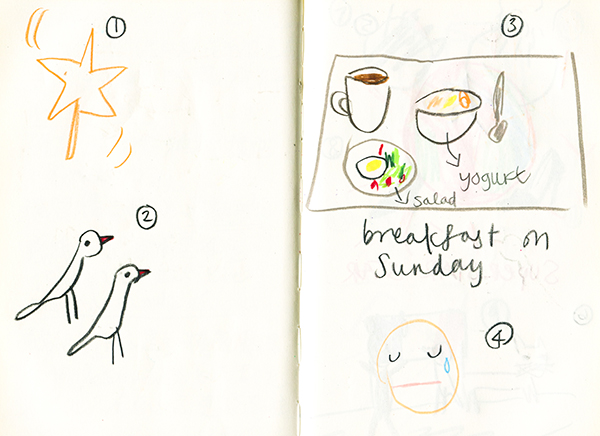 1
2
3
yogurt
salad
breakfast on
Sunday
4